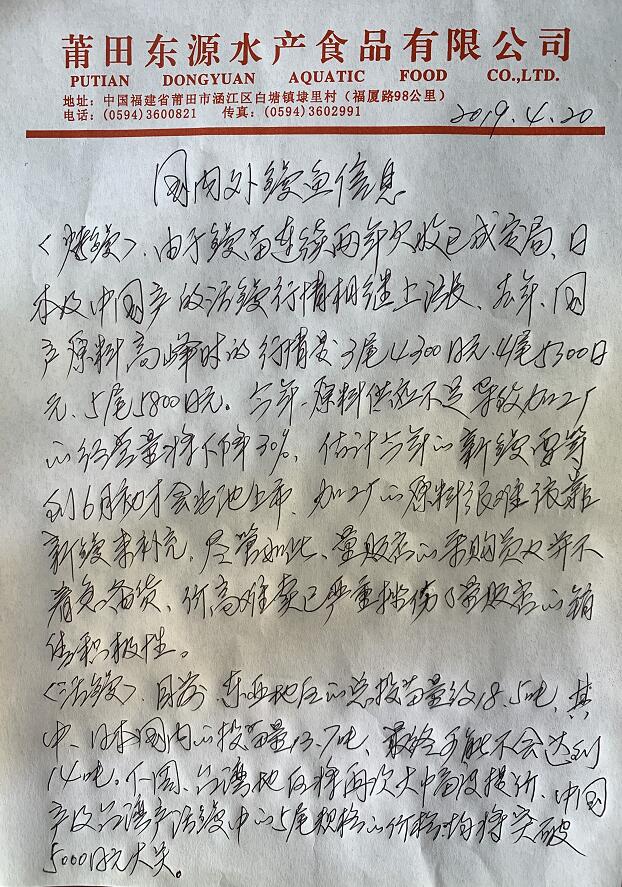 莆田东源水产食品有限公司
PUTIAN DONGYUAN AQUATIC FOOD CO.,LTD.
地址：中国福建省莆田市涵江区白塘镇埭里村（福厦路98公里）
电话：(0594)3600821 传真：(0594)3602991
2019.4.20
国内外鳗鱼信息
〈烤鳗〉、由于鳗苗连续两年欠收已成定局、日
本及中国产的活鳗行情相继上涨、去年、国
产原料高峰时的行情是3尾4300日元、4尾5300日
元、5尾5800日元。今年、原料供应不足导致加工厂
的经营量将下降30%、估计今年的新鳗要等
到6月初才会出池上市、加工厂的原料很难依靠
新鳗来补充、尽管如此、量贩店的采购员也并不
着急备货、价高难卖已严重挫伤了量贩店的销
售积极性。
〈活鳗〉、目前、东亚地区的总投苗量约18.5吨、其
中、日本国内的投苗量13.7吨、最终可能不会达到
14吨。下周、台湾地区将再次大中幅度提价、中国
产及台湾产活鳗中的5尾规格的价格均将突破
5000日元大关。